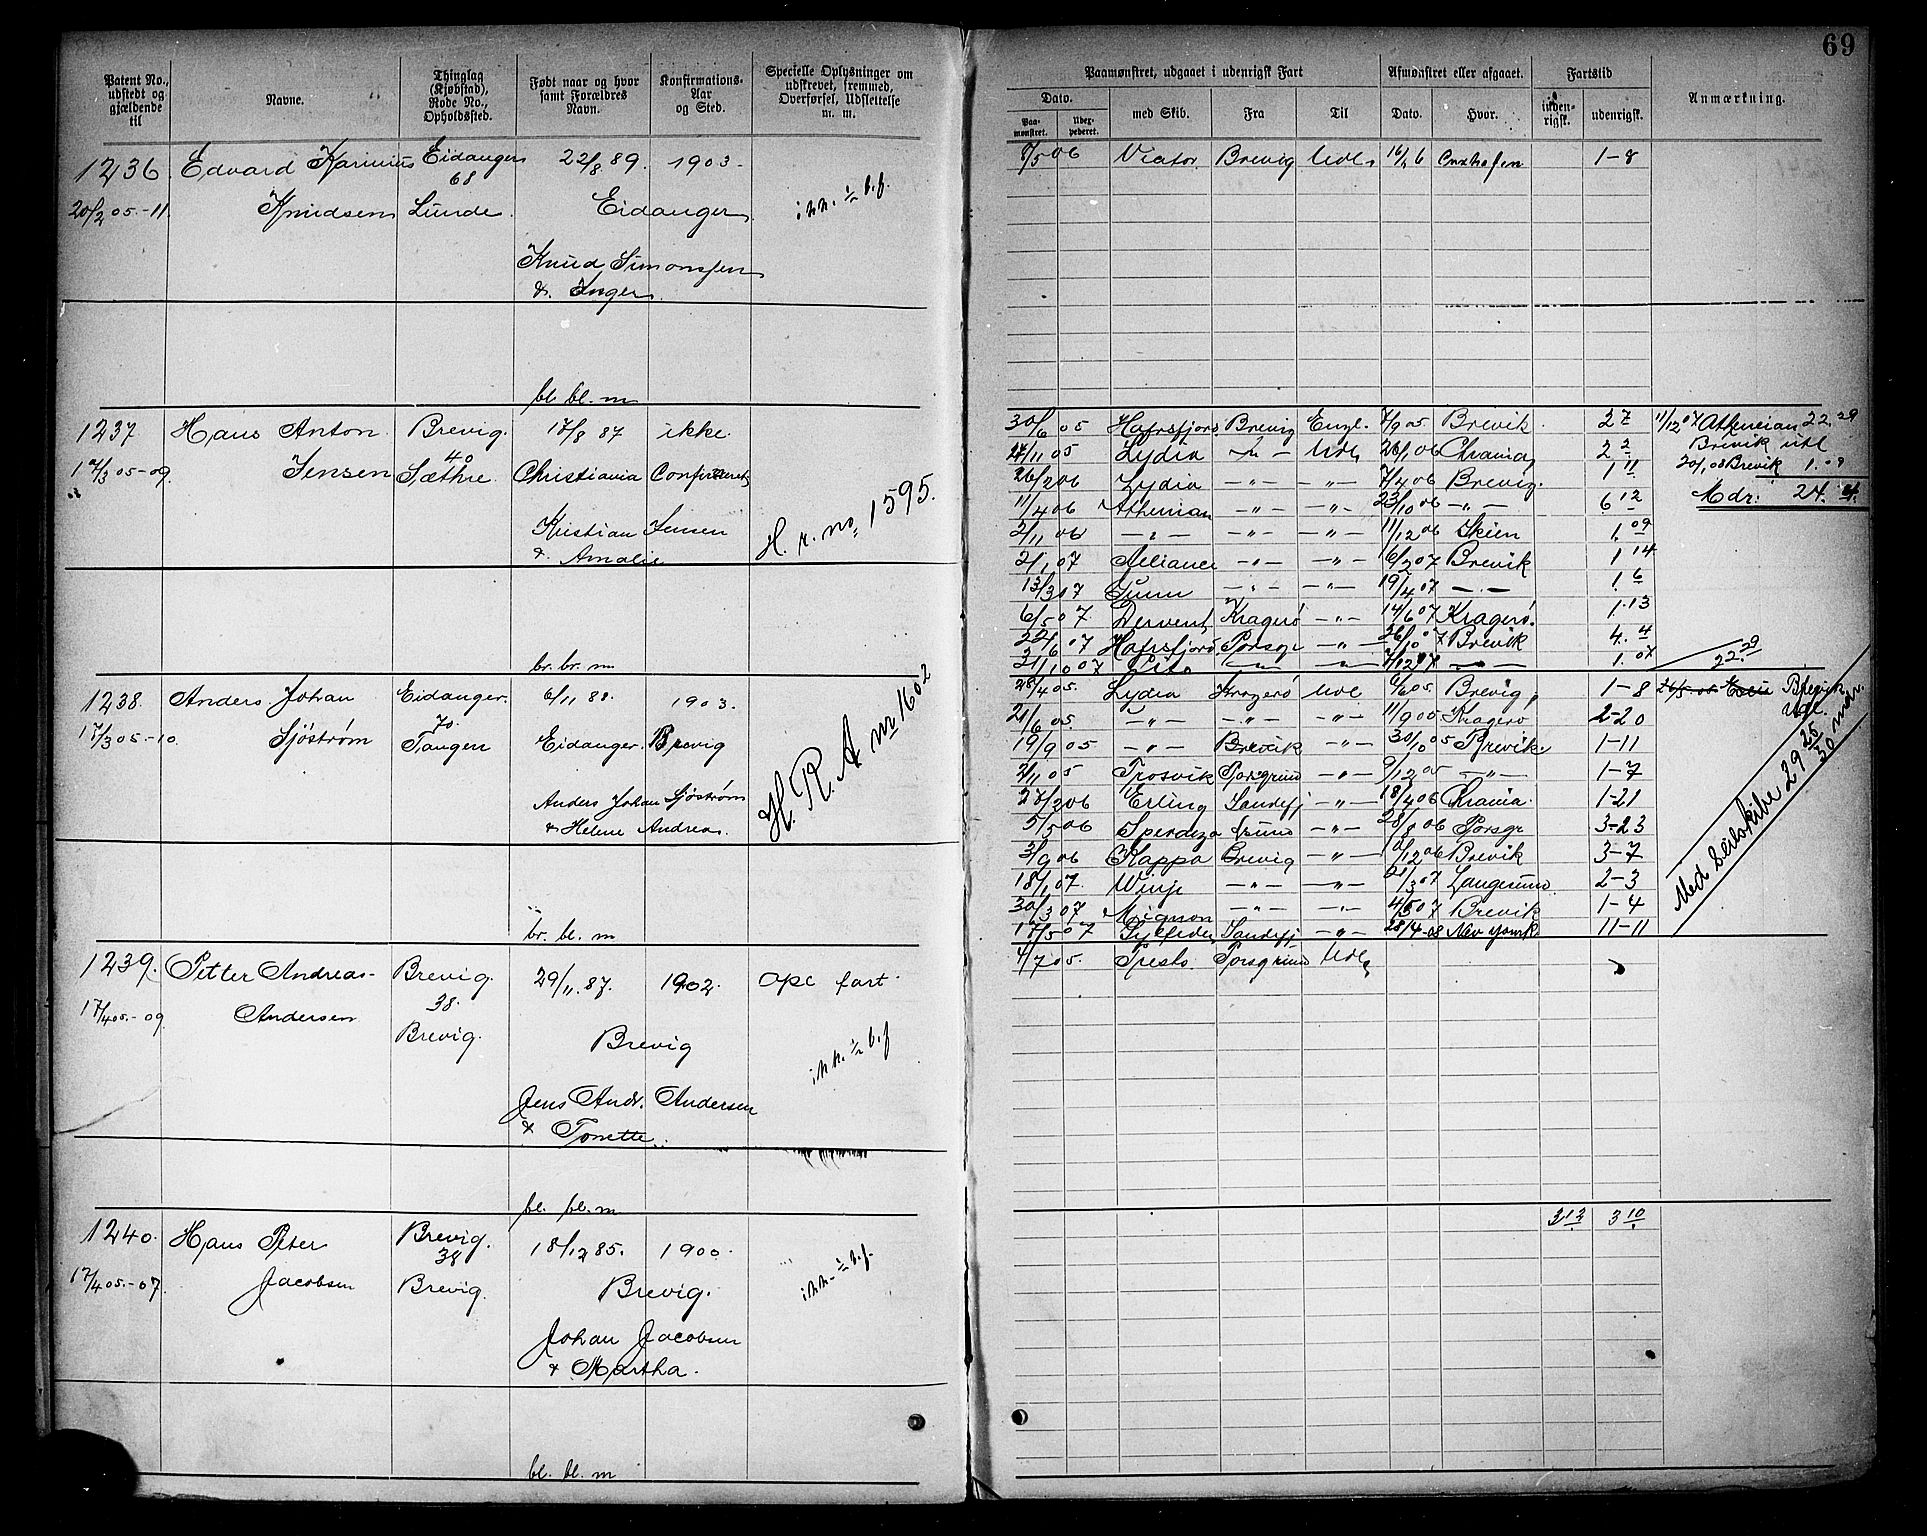 69
Patent No., udstedt og gjældende til
Navne.
Thinglag (Kjøbstad), Rode No., Opholdssted.
Født naar og hvor samt Forældres Navn.
Konfirmations-Aar og Sted.
Specielle Oplysninger om udskrevet, fremmed, Overførsel, Udslettelse m. m.
Paamønstret, udgaaet i udenrigsk Fart
Afmønstret eller afgaaet.
Fartstid
Anmærkning.
Dato.
Paa-mønstret.
med Skib.
Fra
Til
Dato.
Hvor.
inden-rigsk.
udenrigsk.
1236. Edvard Karinius Eidanger 22/8 89. 1903.
68
20/2 05-11 Knudsen Lunde. Eidanger
Knud Simonsen
& Inger
bl. bl. m
8/5 06 Viator Brevig Udl. Cuxhafen 1-8
1237 Hans Anton Brevig. 17/8 87 ikke
40
05-09. Jensen Sæthre. Christiania Confirmeret
Kristian Jensen
& Amalie
H. r. no. 1595.
br. br. m
30/6 05 Hafrsfjord Brevig Engl. 7/9 05. Brevik. 2 7
11/12 07 Athenian 22.29
11 05 Lydia — " — Udl. 26/1 06 Chrania 2 2
Brevik utl
26/2 06 Lydia — " — — " — 7/4 06 Brevig. 1 11
Brevik 1.
11/4 06 Athenian — " — — " — 23/10 06 — " — 6 12
Mdr: 24. 4.
2/11 06 — " — — " — — " — 11/12 06 Skien 1. 09
2/1 07 Alliance — " — — " — 6/2 07 Brevik 1 14
13/3 07 — " — — " — 19/4 07 — " — 1. 6
6/5 07 Dervent Kragerø — " — 14/6 07 Kragerø. 1. 13
22/6 07 Hafrsfjord Porsgr — " — 26/10 07 Brevik 4. 4
31/10 07 — " — — " — — " — 1. 07
22.23
1238. Anders Johan Eidanger. 6/11 88. 1903.
70
17/3 05-10 Sjöström Tangen Eidanger. Brevig
Anders Johan Sjøstrøm
& Helene Andrea.
H. R. A nr 1602
br. bl. m
28/4 05. Lydia Kragerø Udl 6/6 05. Brevig, 1-8
Brevik
Udl.
21/6 05. — " — — " — — " — 11/9 05 Kragerø 2-20
19/9 05 — " — Brevik — " — 30/10 05 Brevik. 1-11
2/11 05 Trosvik Porsgrund — " — 9/12 05 — " — 1-7
27/2 06 Erling Sandefj — " — 18/4 06 Chrania. 1-21
5/5 06 — " — 28/8 06 Porsgr 3-23
3/9 06 Kappa Brevig — " — 12 06 Brevik 3-7
18/1 07. Winje — " — — " — 21/3 07 Langesund. 2-3
30/3 07 Mignon — " — — " — 4/5 07 Brevik 1-4
17/5 07 Sandefj — " — 28/4-08 New York 11-11
Med Seilskibe 29 25/30 mdr.
1239. Petter Andreas Brevig. 29/11. 87. 1902. Opl fart
38.
17/4 05.-09. Andersen Brevig. Brevig
Jens Andr. Andersen
& Tonette.
bl. bl. m
4/7 05. Presto Porsgrund Udl.
1240. Hans Peter Brevig. 18/12 85. 1900.
38
17/4 05.-07. Jacobsen Brevig. Brevig.
Johan Jacobsen
& Martha.
bl. bl. m
3 13 3 10